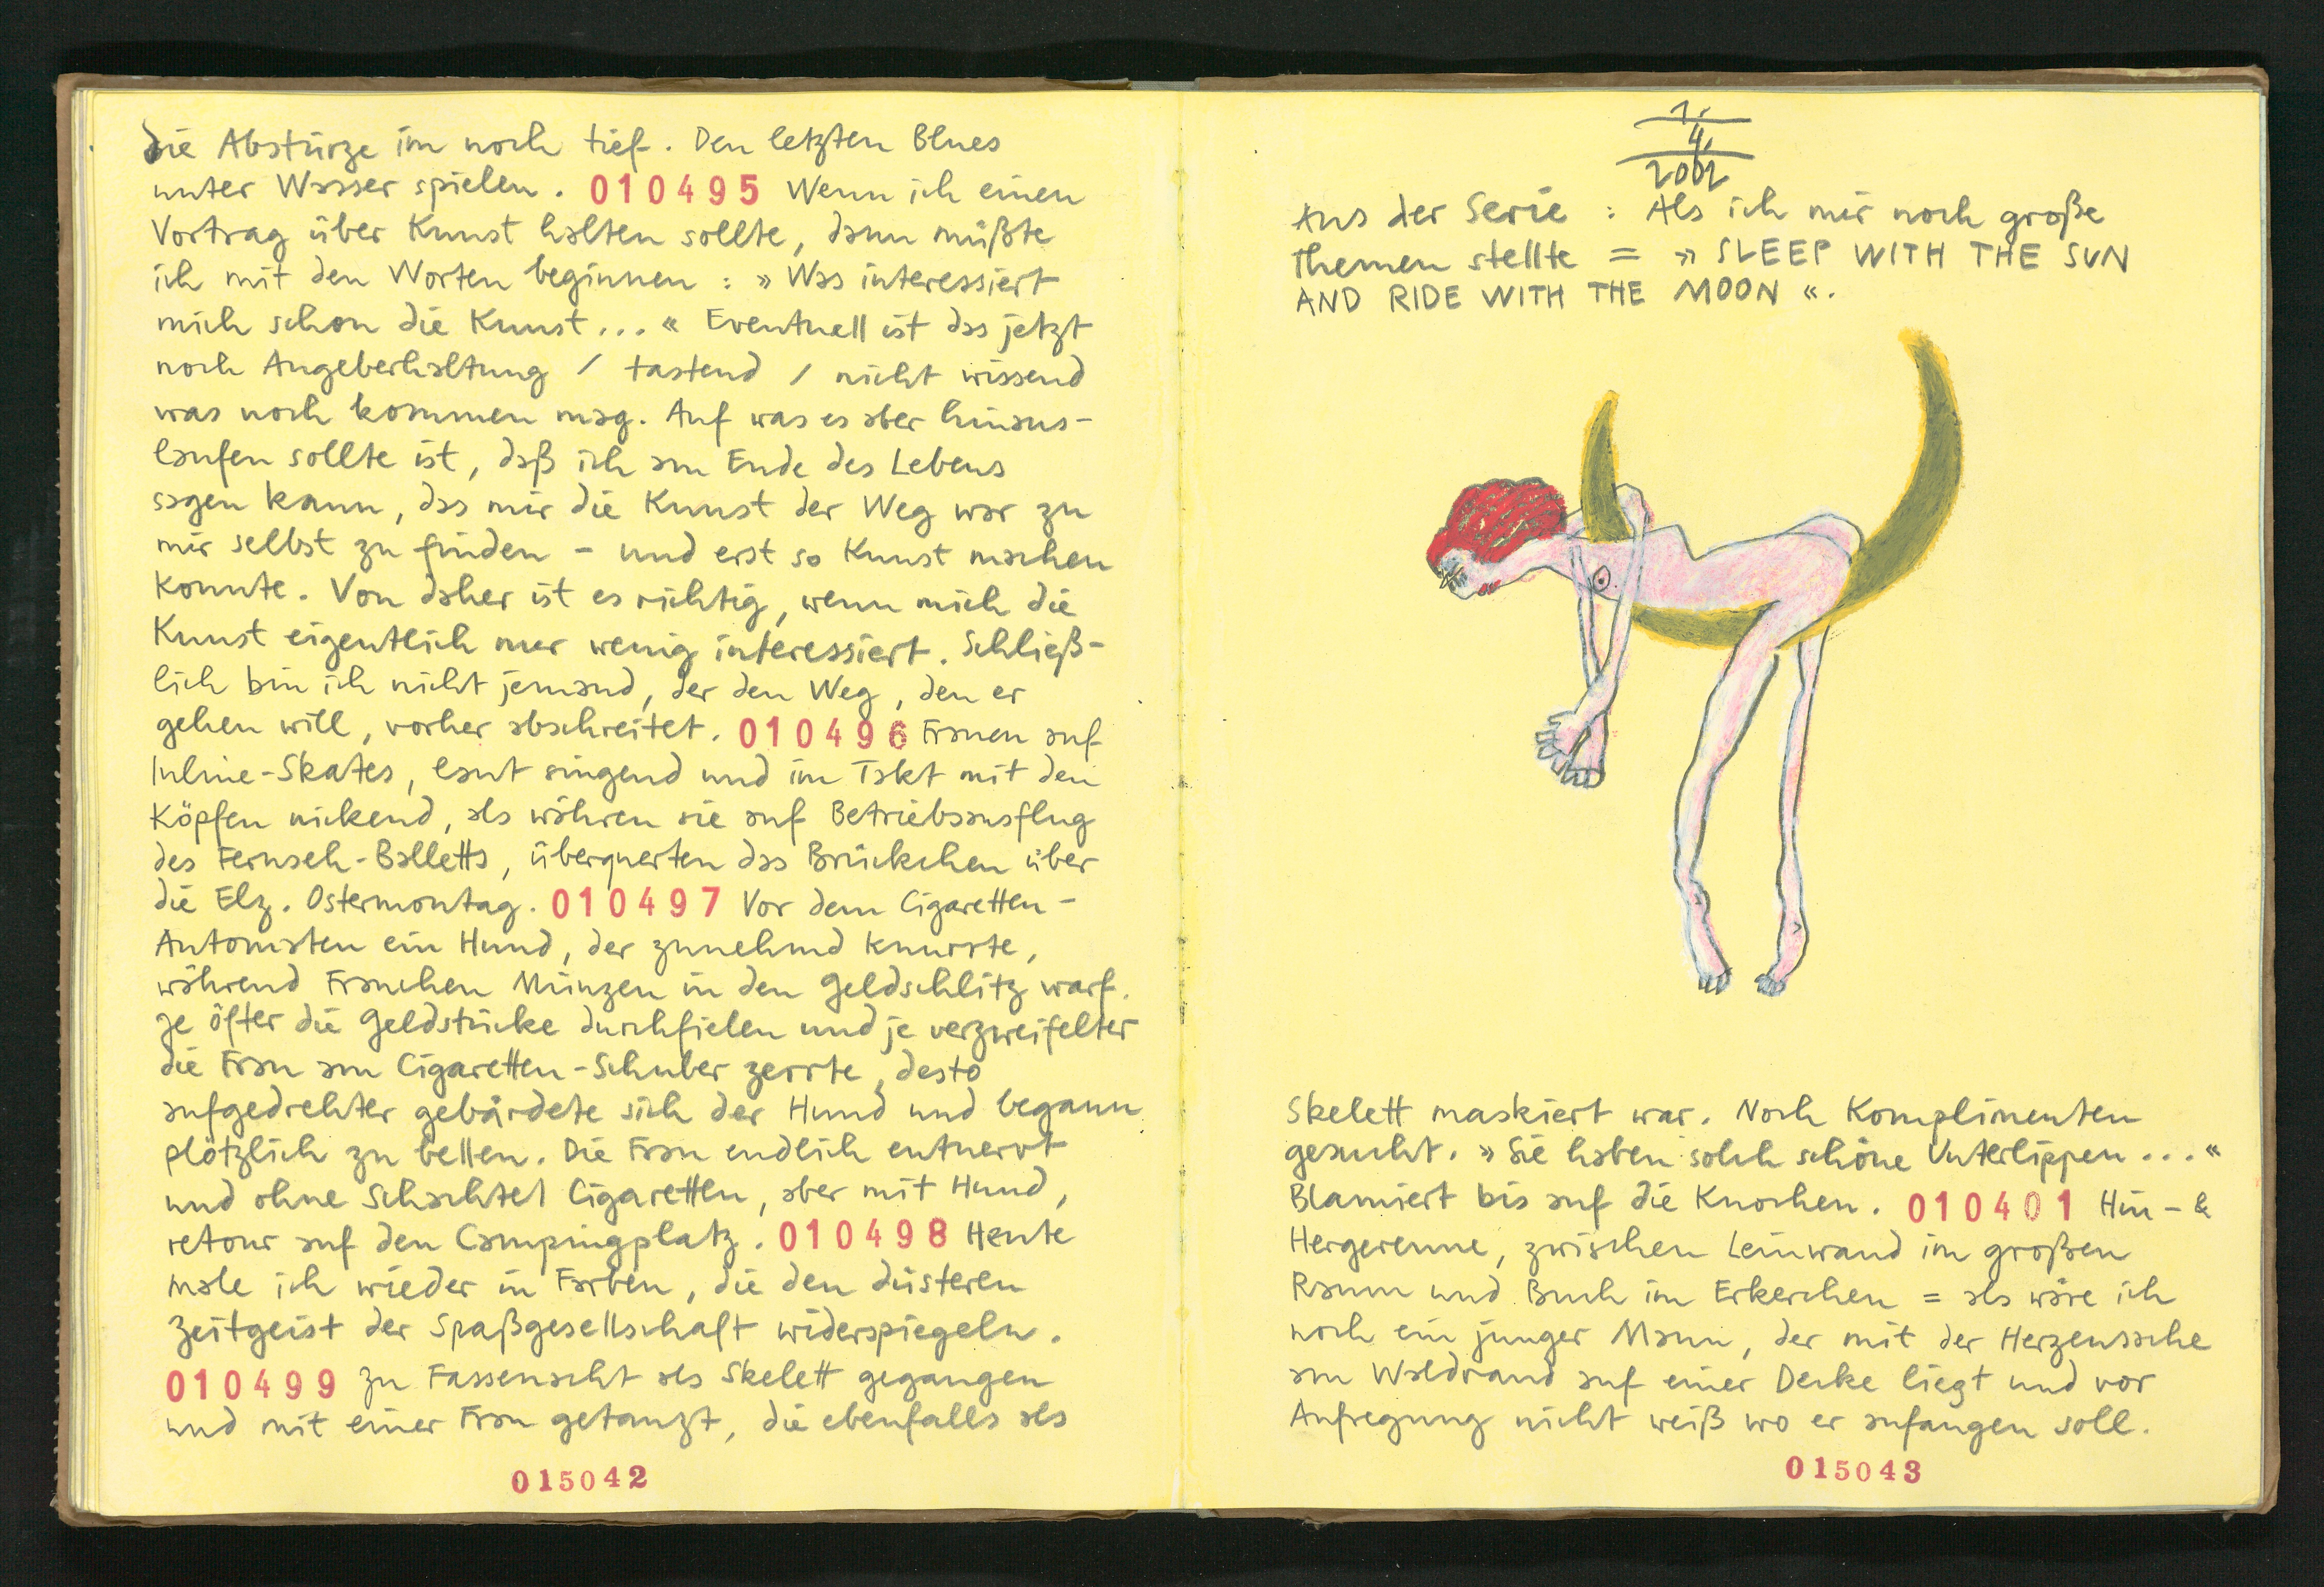 die Abstürze im noch tief. Den letzten Blues
unter Wasser spielen. 010495 Wenn ich einen
Vortrag über Kunst halten sollte, dann müßte
ich mit den Worten beginnen : » Was interessiert
mich schon die Kunst... « Eventuell ist das jetzt
noch Angeberhaltung / tastend / nicht wissend
was noch kommen mag. Auf was es aber hinaus-
laufen sollte ist, daß ich am Ende des Lebens
sagen kann, das mir die Kunst der Weg war zu
mir selbst zu finden - und erst so Kunst machen
konnte. Von daher ist es richtig, wenn mich die
Kunst eigentlich nur wenig interessiert. Schließ-
lich bin ich nicht jemand, der den Weg, den er
gehen will, vorher abschreitet. 010496 Frauen auf
Inline-Skates, laut singend und im Takt mit den
Köpfen nickend, als währen sie auf Betriebsausflug
des Fernseh-Balletts, überquerten das Brückchen über
die Elz. Ostermontag. 010497 Vor dem Cigaretten-
Automaten ein Hund, der zunehmd knurrte,
während Frauchen Münzen in den Geldschlitz warf.
Je öfter die Geldstücke durchfielen und je verzweifelter
die Frau am Cigaretten-Schuber zerrte, desto
aufgedrehter gebärdete sich der Hund und begann
plötzlich zu bellen. Die Frau endlich entnervt
und ohne Schachtel Cigaretten, aber mit Hund,
retour auf den Campingplatz. 010498 Heute
male ich wieder in Farben, die den düsteren
Zeitgeist der Spaßgesellschaft widerspiegeln.
010499 Zu Fassenacht als Skelett gegangen
und mit einer Frau getanzt, die ebenfalls als
015042
1.
4.
2002
Aus der Serie : Als ich mir noch große
Themen stellte = » SLEEP WITH THE SUN
AND RIDE WITH THE MOON «.
Skelett maskiert war. Noch Komplimenten
gesucht. » Sie haben solch schöne Unterlippen... «
Blamiert bis auf die Knochen. 010401 Hin- &
Hergerenne, zwischen Leinwand im großen
Raum und Buch im Erkerchen = als wäre ich
noch ein junger Mann, der mit der Herzenssache
am Waldrand auf einer Decke liegt und vor
Aufregung nicht weiß wo er anfangen soll.
015043